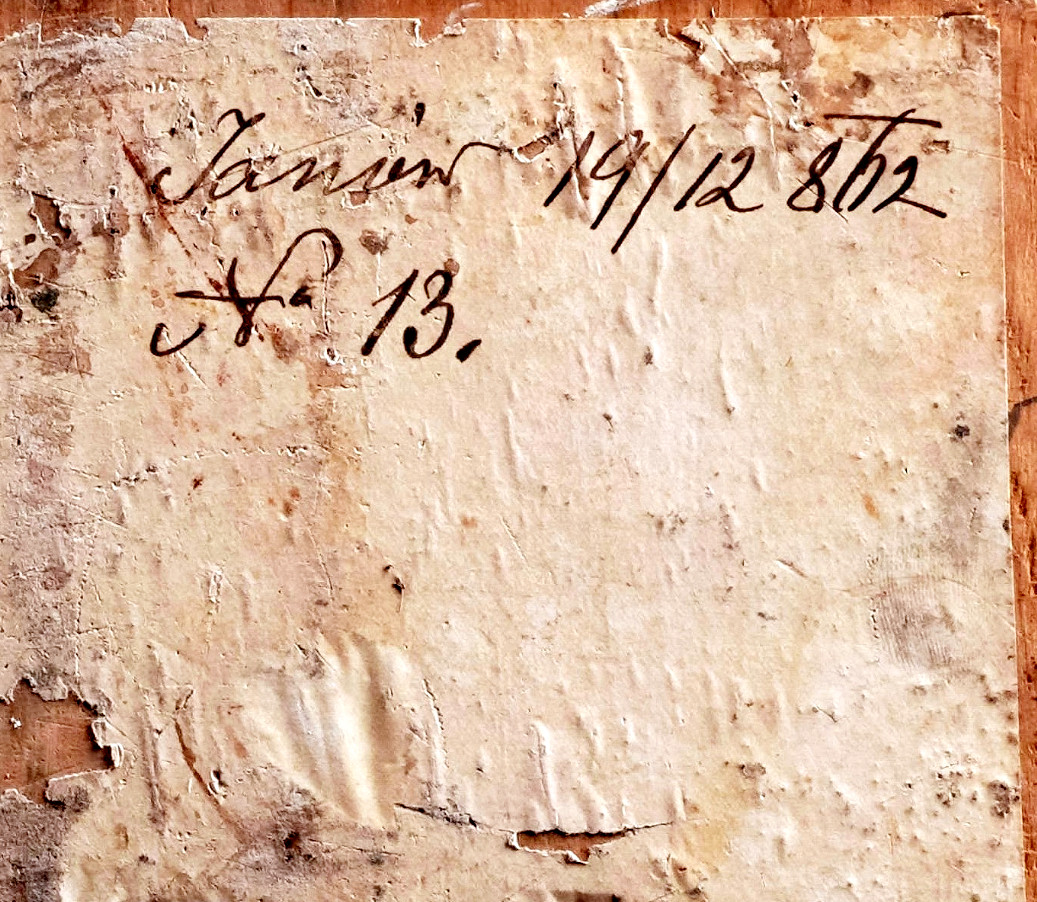 Janów 19/12
Nº 13.